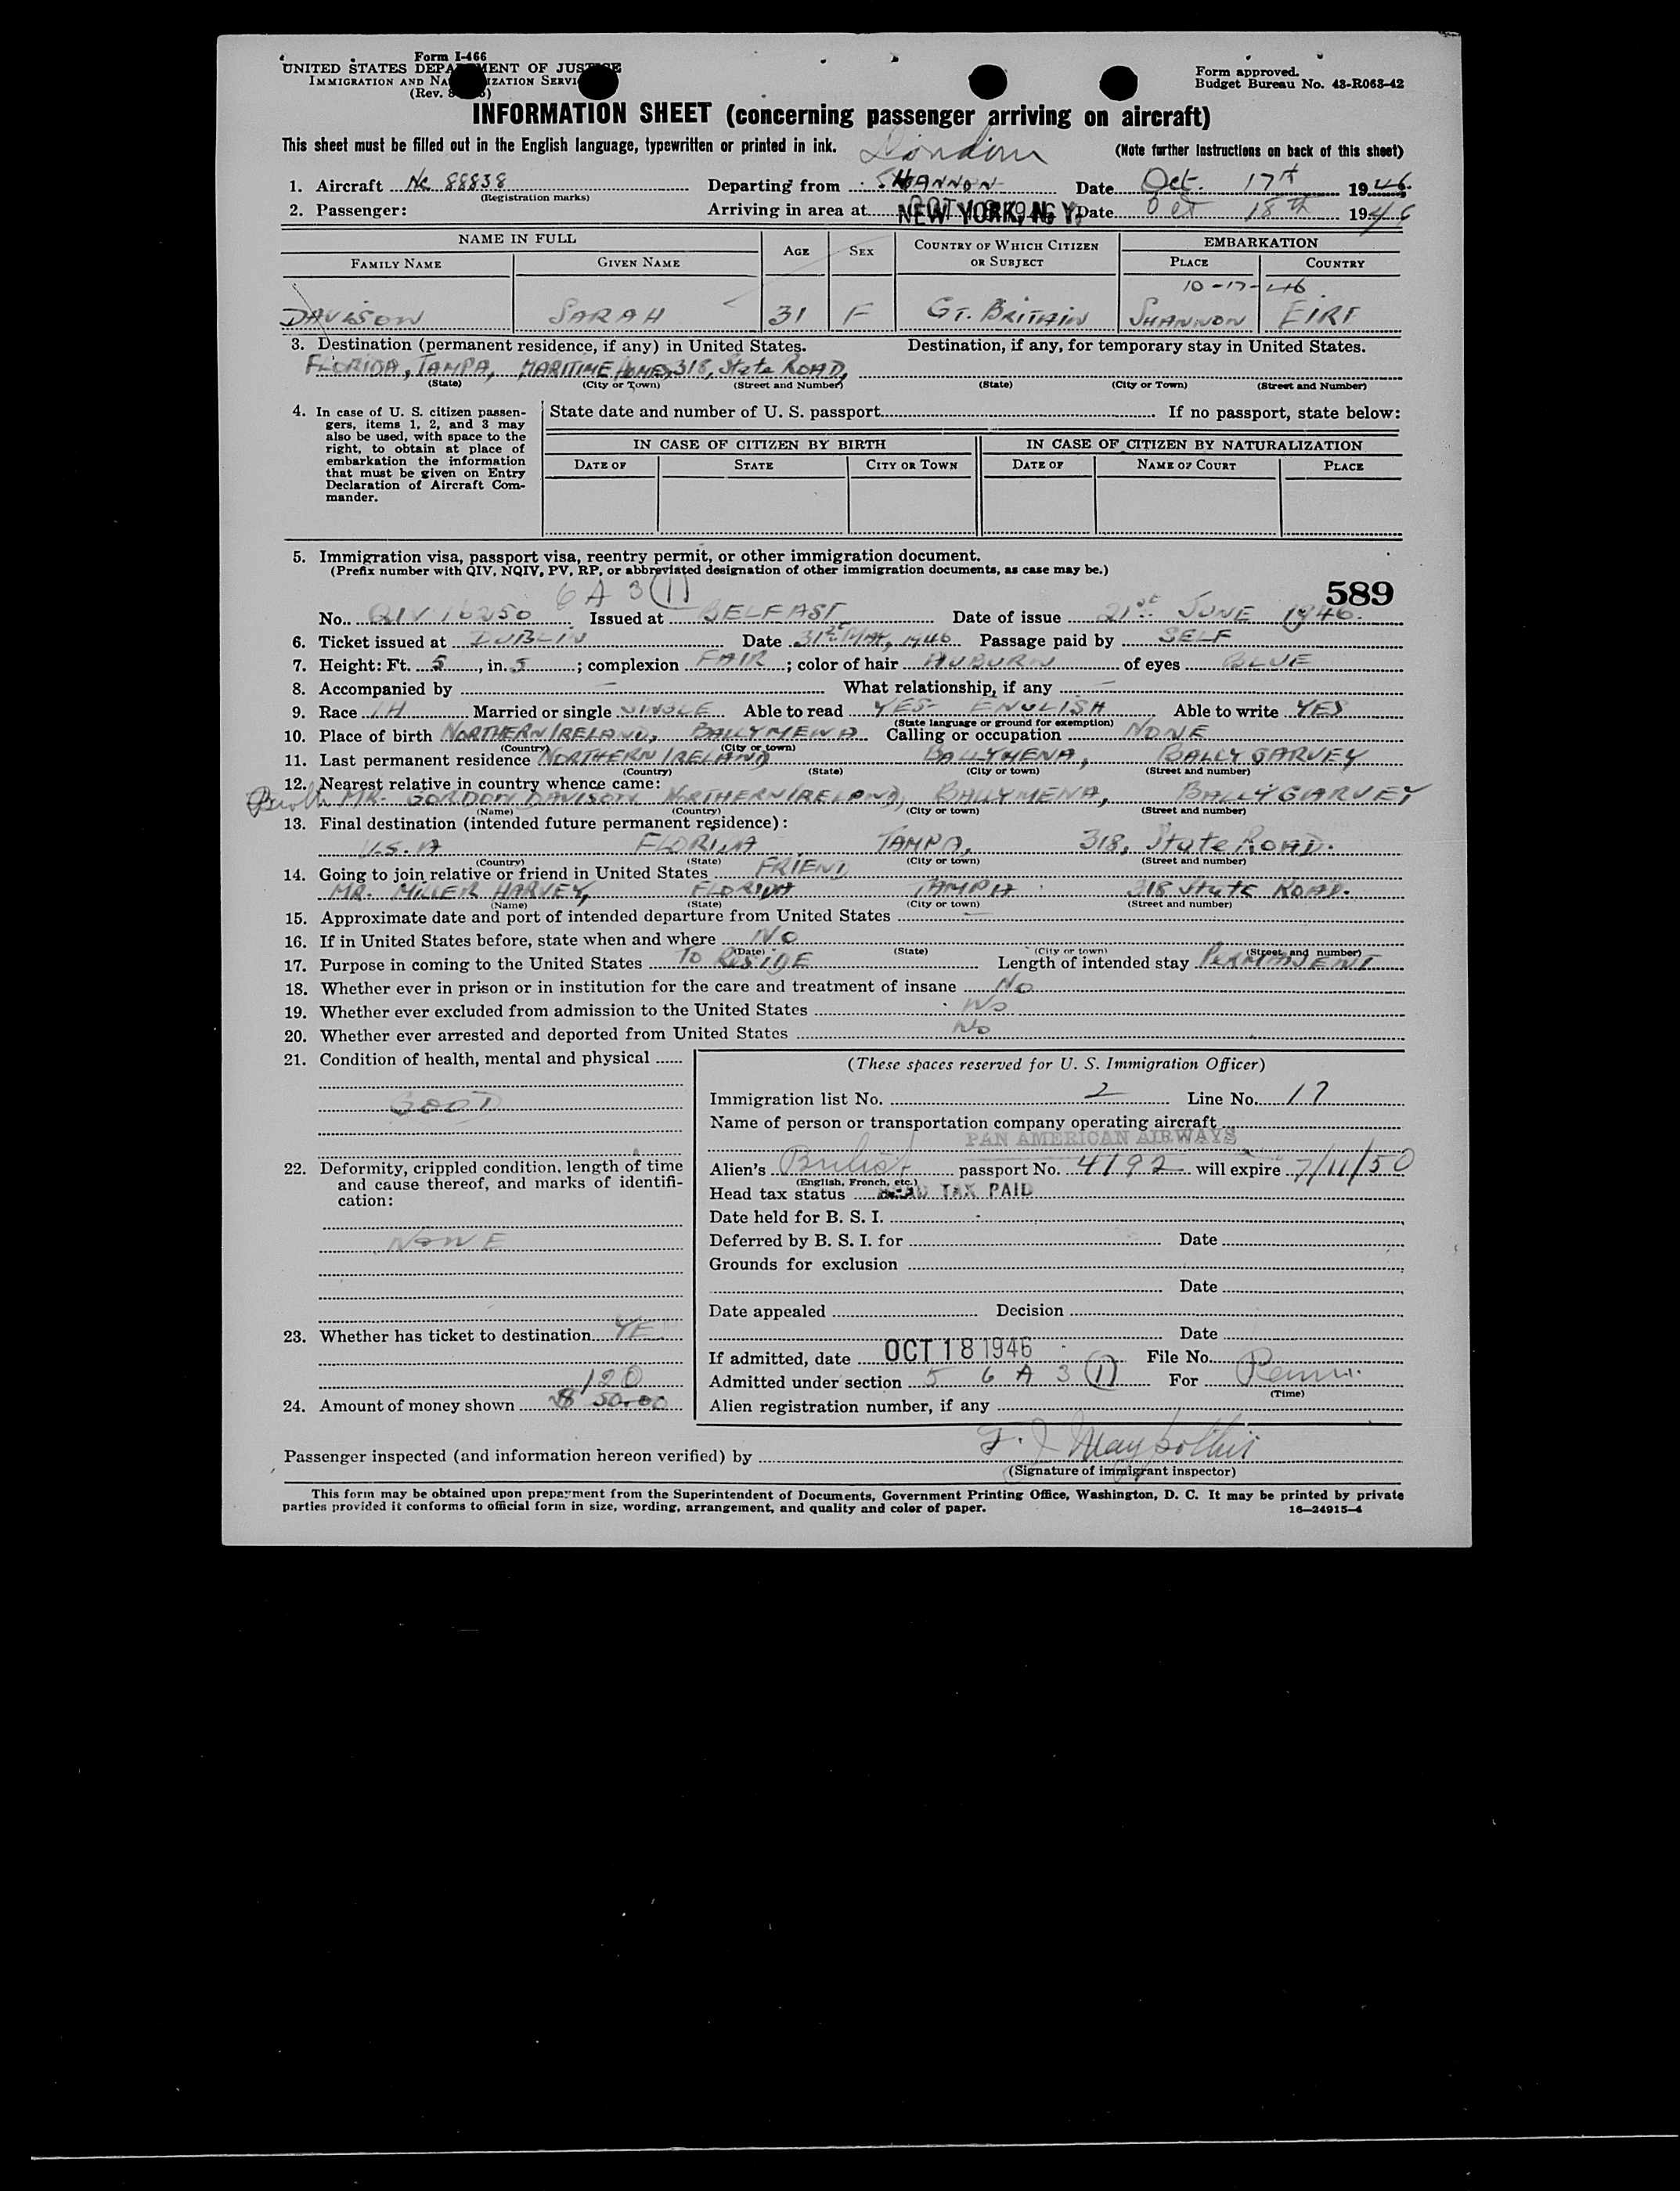 Form I-466
UNITED STATES DEPARTMENT OF JUSTICE
IMMIGRATION AND NATURALIZATION SERVICE
(Rev.
Form approved.
Budget Bureau No. 43-R063-42
INFORMATION SHEET (concerning passenger arriving on aircraft)
This sheet must be filled out in the English language, typewritten or printed in ink.
London
(Note further instructions on back of this sheet)
1. Aircraft Nc 88838 Departing from SHANNON Date Oct. 17th 1946.
(Registration marks)
2. Passenger: Arriving in area at NEW YORK, N. Y. Date Oct 18th 1946
NAME IN FULL AGE SEX COUNTRY OF WHICH CITIZEN OR SUBJECT EMBARKATION
FAMILY NAME GIVEN NAME PLACE COUNTRY
10-17-46
DAVISON SARAH 31 F GT. BRITAIN SHANNON EIRE
3. Destination (permanent residence, if any) in United States. Destination, if any, for temporary stay in United States.
FLORIDA, TAMPA, MARITIME HOMES, 318, State ROAD,
(State) (City or Town) (Street and Number) (State) (City or Town) (Street and Number)
4. In case of U. S. citizen passen-
gers, items 1, 2, and 3 may
also be used, with space to the
right, to obtain at place of
embarkation the information
that must be given on Entry
Declaration of Aircraft Com-
mander.
State date and number of U. S. passport If no passport, state below:
IN CASE OF CITIZEN BY BIRTH IN CASE OF CITIZEN BY NATURALIZATION
DATE OF STATE CITY OR TOWN DATE OF NAME OF COURT PLACE
5. Immigration visa, passport visa, reentry permit, or other immigration document.
(Prefix number with QIV, NQIV, PV, RP, or abbreviated designation of other immigration documents, as case may be.)
6 A 3 (1)
589
No. QIV 16250 Issued at BELFAST Date of issue 21st JUNE 1946.
6. Ticket issued at DUBLIN Date 31st MAY, 1946 Passage paid by SELF
7. Height: Ft. 5, in. 5; complexion FAIR; color of hair AUBURN of eyes BLUE
8. Accompanied by — What relationship, if any —
9. Race IH Married or single SINGLE Able to read YES- ENGLISH Able to write YES
(State language or ground for exemption)
10. Place of birth NORTHERN IRELAND, BALLYMENA Calling or occupation NONE
(Country) (City or town)
11. Last permanent residence NORTHERN IRELAND BALLYMENA, BALLYGARVEY
(Country) (State) (City or town) (Street and number)
12. Nearest relative in country whence came:
Broth. MR. GORDON DAVISON NORTHERN IRELAND, BALLYMENA, BALLYGARVEY
(Name) (Country) (City or town) (Street and number)
13. Final destination (intended future permanent residence):
U.S.A FLORIDA TAMPA, 318, State ROAD.
(Country) (State) (City or town) (Street and number)
14. Going to join relative or friend in United States FRIEND
MR. MILLER HARVEY, FLORIDA TAMPA 318 State ROAD.
(Name) (State) (City or town) (Street and number)
15. Approximate date and port of intended departure from United States —
16. If in United States before, state when and where NO
(Date) (State) (City or town) (Street and number)
17. Purpose in coming to the United States TO RESIDE Length of intended stay PERMANENT
18. Whether ever in prison or in institution for the care and treatment of insane No
19. Whether ever excluded from admission to the United States No
20. Whether ever arrested and deported from United States No
21. Condition of health, mental and physical
GOOD
22. Deformity, crippled condition, length of time
and cause thereof, and marks of identifi-
cation:
NONE
23. Whether has ticket to destination YES
120
24. Amount of money shown $ 50.00
(These spaces reserved for U. S. Immigration Officer)
Immigration list No. 2 Line No. 17
Name of person or transportation company operating aircraft
PAN AMERICAN AIRWAYS
Alien's British passport No. 4192 will expire 7/11/50
(English, French, etc.)
Head tax status HEAD TAX PAID
Date held for B. S. I.
Deferred by B. S. I. for Date
Grounds for exclusion
Date
Date appealed Decision
Date
If admitted, date OCT 18 1946 File No.
Admitted under section 5 6 A 3 (1) For Perm.
(Time)
Alien registration number, if any
Passenger inspected (and information hereon verified) by F. J.
(Signature of immigrant inspector)
This form may be obtained upon prepayment from the Superintendent of Documents, Government Printing Office, Washington, D. C. It may be printed by private
parties provided it conforms to official form in size, wording, arrangement, and quality and color of paper. 16—24915-4